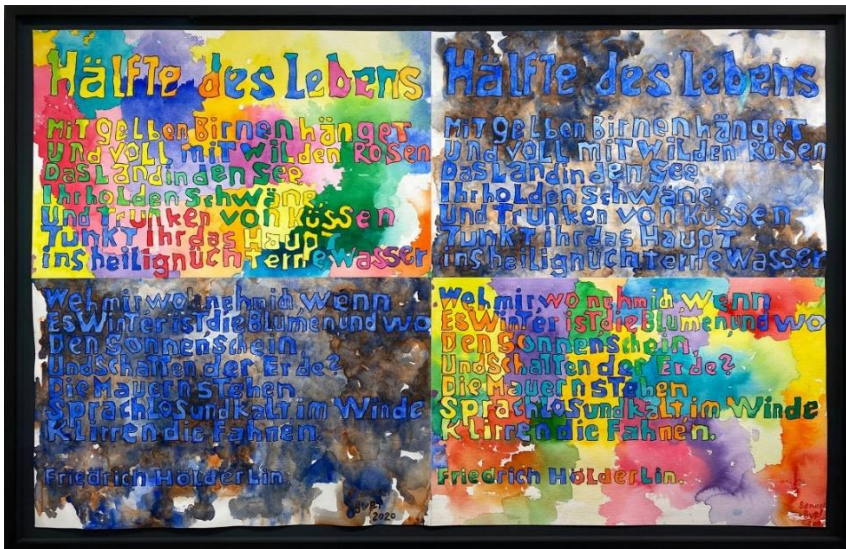 Hälfte des Lebens
Mit gelben Birnen hänget
und voll mit wilden Rosen
Das Land in den See
Ihr holden Schwäne,
Und trunken von Küssen
Tunkt ihr das Haup
ins heilignüchterne Wasser
Hälfte des Lebens
Mit gelben Birnen hänget
und voll mit wilden Rosen
Das Land in den See
Ihr holden Schwäne,
Und trunken von Küssen
Tunkt ihr das Haupt
ins heilignüchterne Wasser
Weh mir, wo nehm ich, wenn
Es Winter ist die Blumen, und wo
Den Sonnenschein
Und Schatten der Erde?
Die Mauern stehen
Sprachlos und kalt, im Winde
Klirren die Fahnen.
Friedrich Hölderlin.
2020
Weh mir, wo nehm ich, wenn
Es Winter ist die Blumen, und wo
Den Sonnenschein,
Und Schatten der Erde?
Die Mauern stehen
Sprachlos und kalt, im Winde
Klirren die Fahnen.
Friedrich Hölderlin.